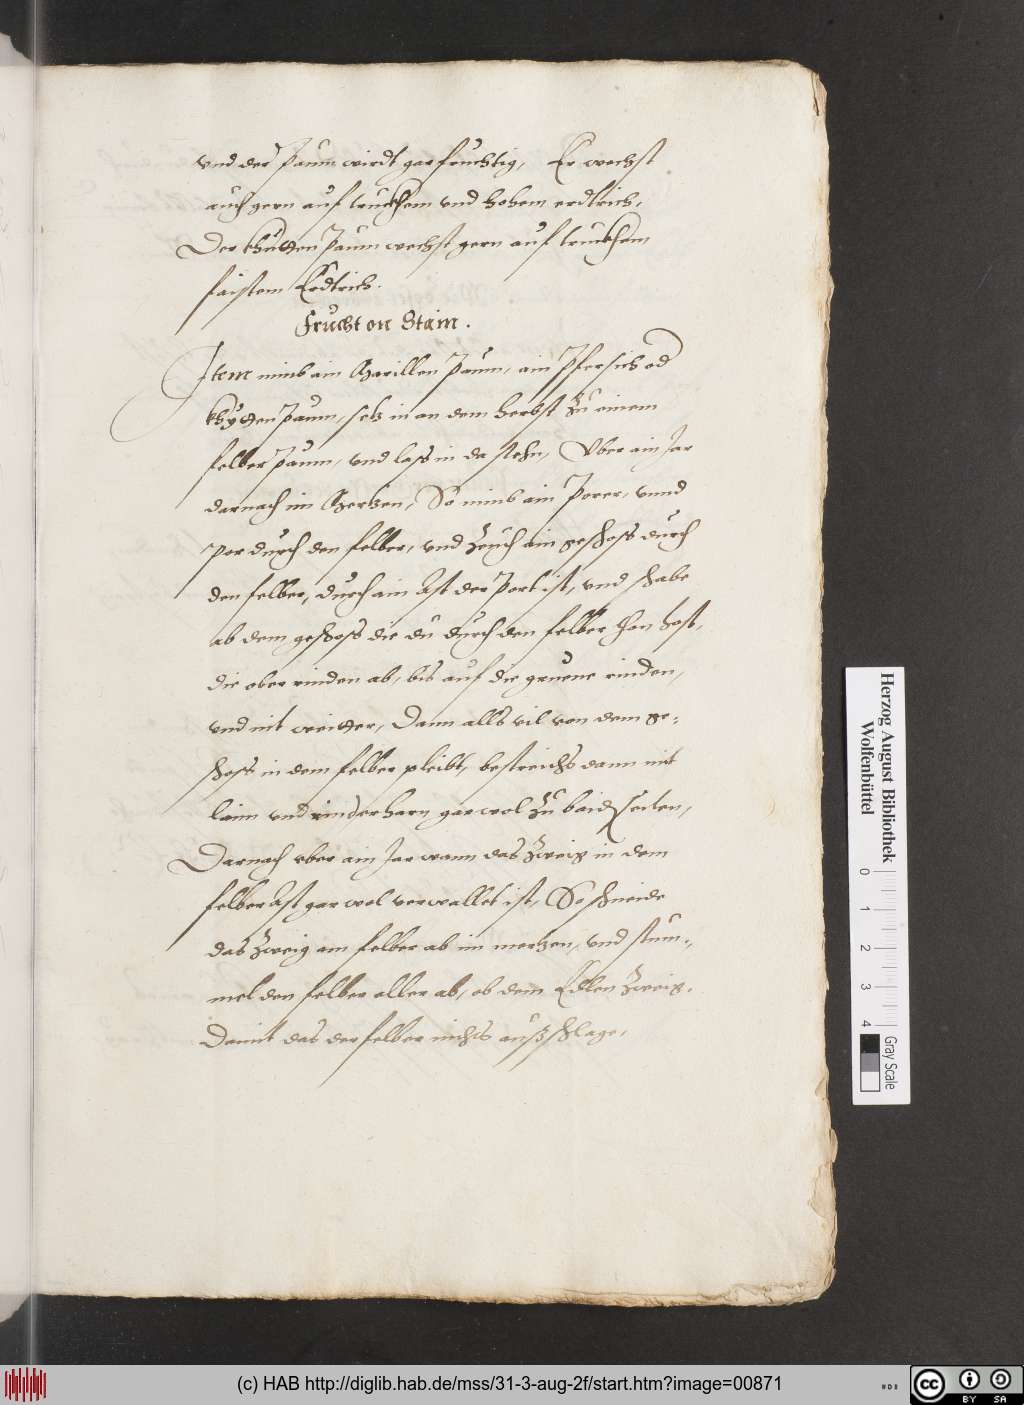 vnd der paum wirdt gar fruchtig, Er wechst
auch gern auf truckhem vnd hohem erdtrich,
Der khutten paum wechst gern auf truckhem
faistem Erdtrich.
Frucht on Stain.
Item nimb ain Marillen paum, ain Pfersich od
khytten paum, setz in an dem herbst zu einem
felber paum, vnd lass in da stehn, Vber ain Jar
darnach im Mertzen, So nimb ain Porer, vnnd
por durch den felber, vnd zeuch ain geschoss durch
den felber, durch ain Ast der port ist, vnd schabe
ab dem geschoss die du durch den felber than hast,
die ober rinden ab, bis auf die gruene rinden,
vnd nit weitter, Dann alls vil von dem ge-
schoss in dem felber pleibt, bestreichs dann mit
laim vnd rinderharn gar wol zu baiden seiten,
Darnach vber ain Jar wann das zweig in dem
felber Ast gar wol verwallet ist, So schneide
das zweig am felber ab im mertzen, vnd stum-
mel den felber aller ab, ob dem Edlen zweig,
Damit das der felber nichts außschlage,
Herzog August Bibliothek
Wolfenbüttel
0 1 2 3 4
Gray Scale
(c) HAB http://diglib.hab.de/mss/31-3-aug-2f/start.htm?image=00871
cc BY SA